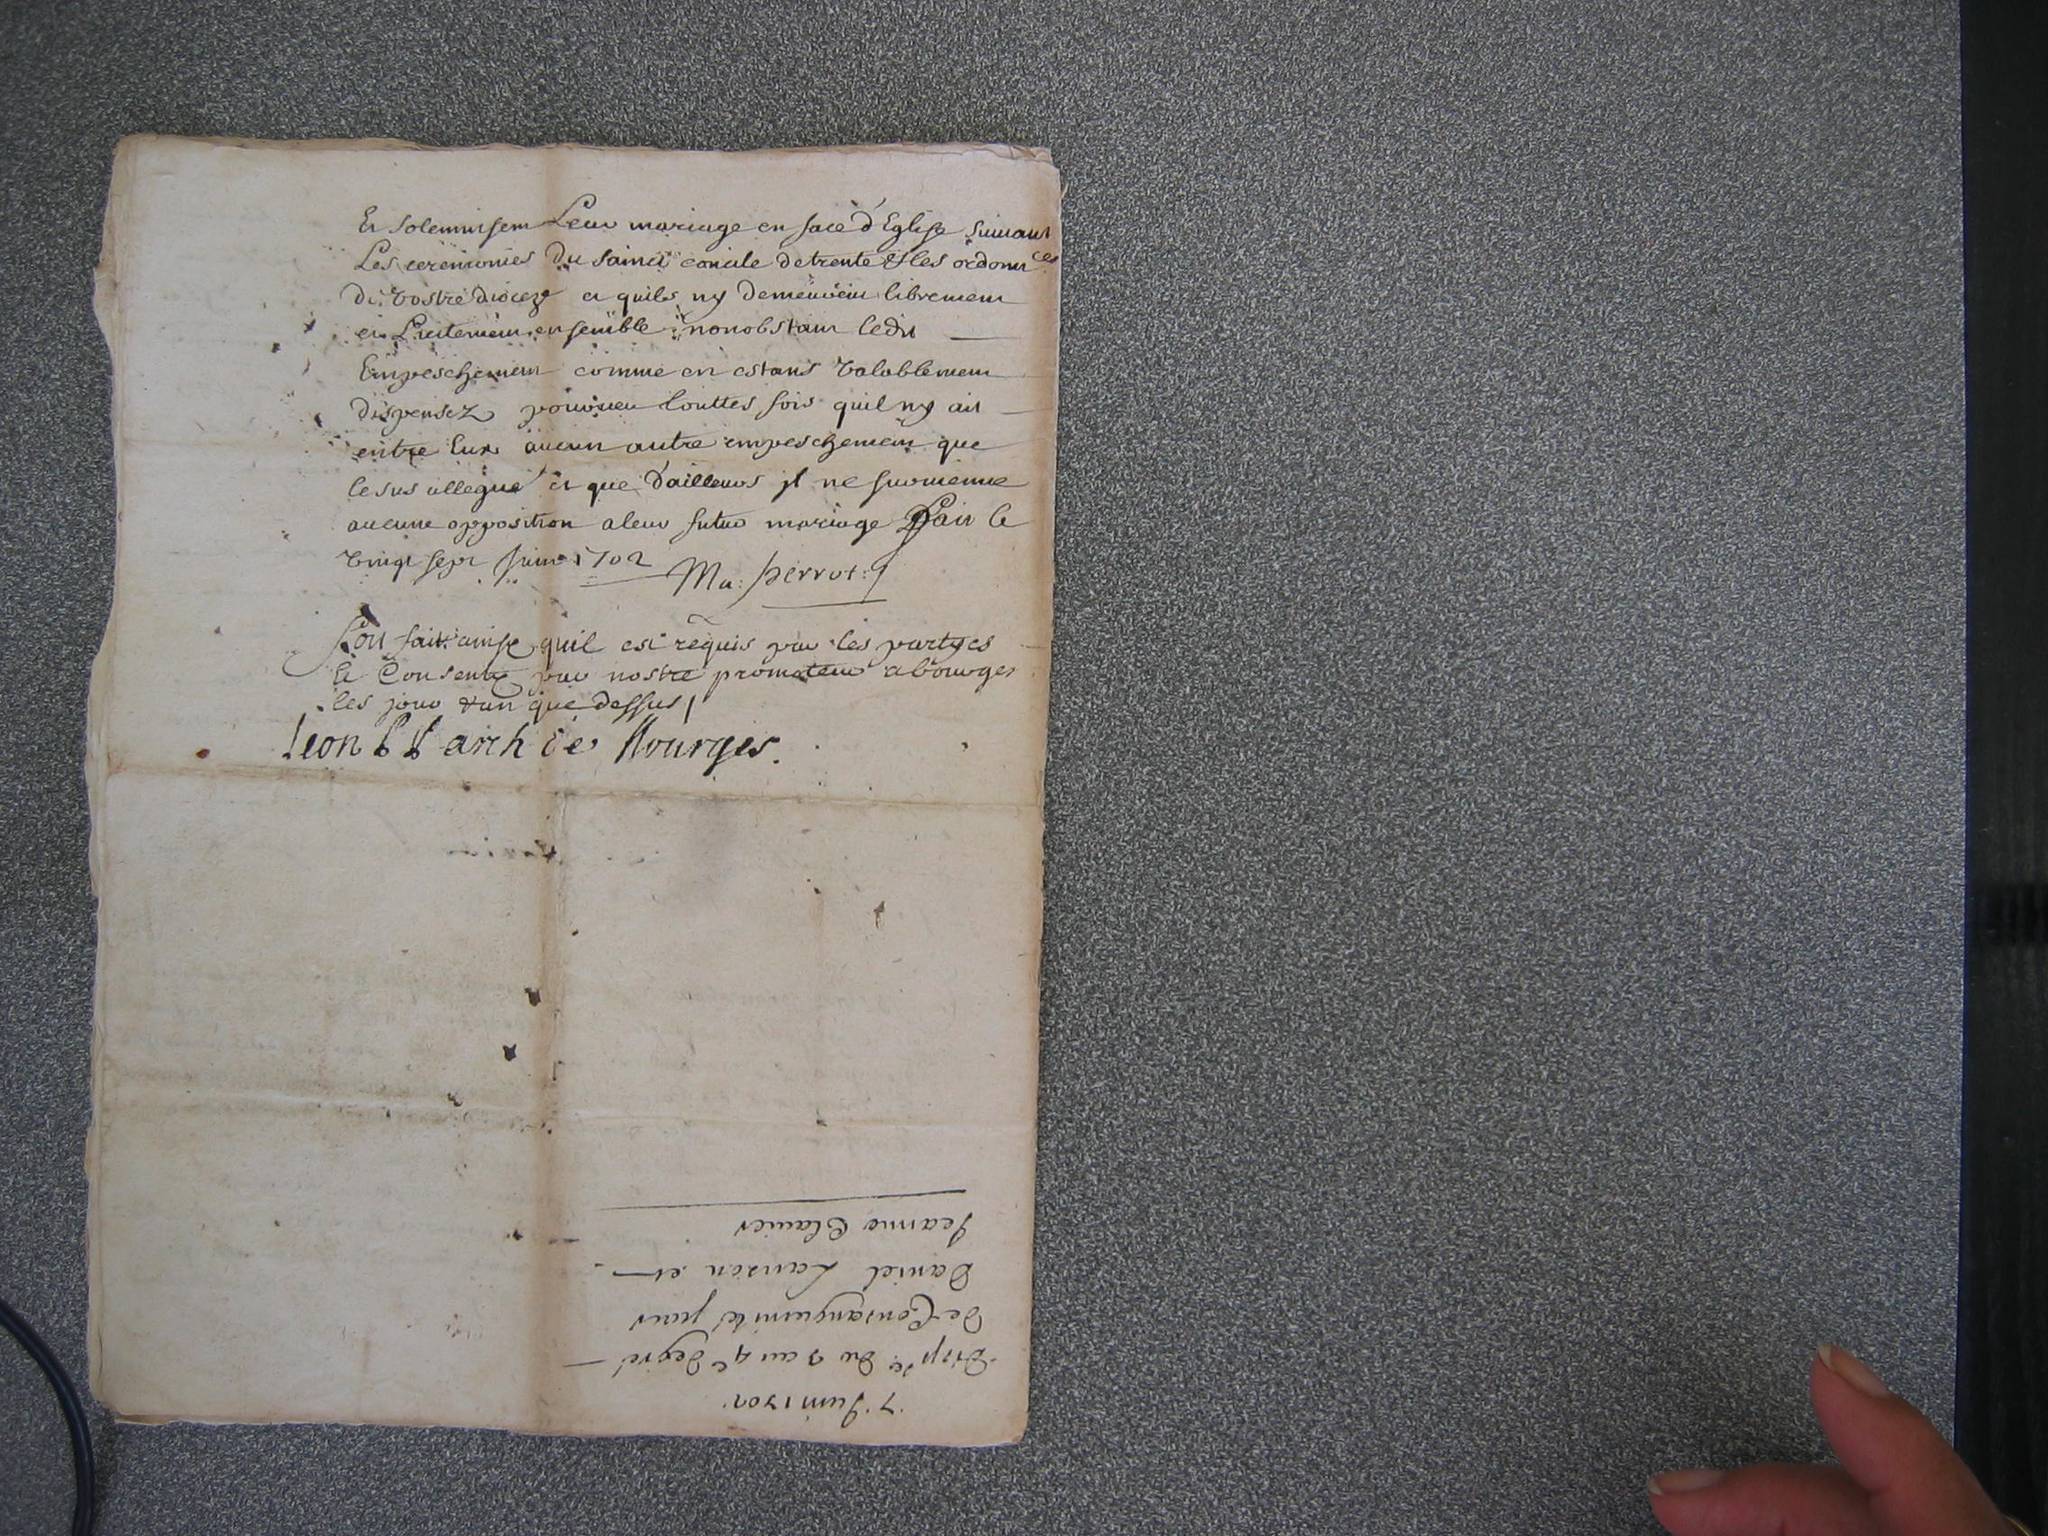 Et solemnisent Leur mariage en face d'Eglise suivant
Les ceremonies Du saint concile de trente & les ordonnces
De vostre dioceze et quils ny demeurent librement
et licitement ensemble nonobstant ledit
Empeschement comme en estans valablement
dispensez pourveu touttes fois quil ny ait
entre Eux aucun autre empeschement que
le sus allegué et que d'ailleurs jl ne survienne
aucune opposition a leur futur mariage Fait le
vingt sept Juin 1702 Ma: perrot:
soit fait ainsy quil est requis par les partyes
Et Consenty par nostre promoteur a bourges
les jour & an que dessus
Leon P P arch de Bourges.
7 Juin 1702
dispce du 3 au 4e degré
de Consanguinité pour
Daniel Lanson et
Jeanne Clavier